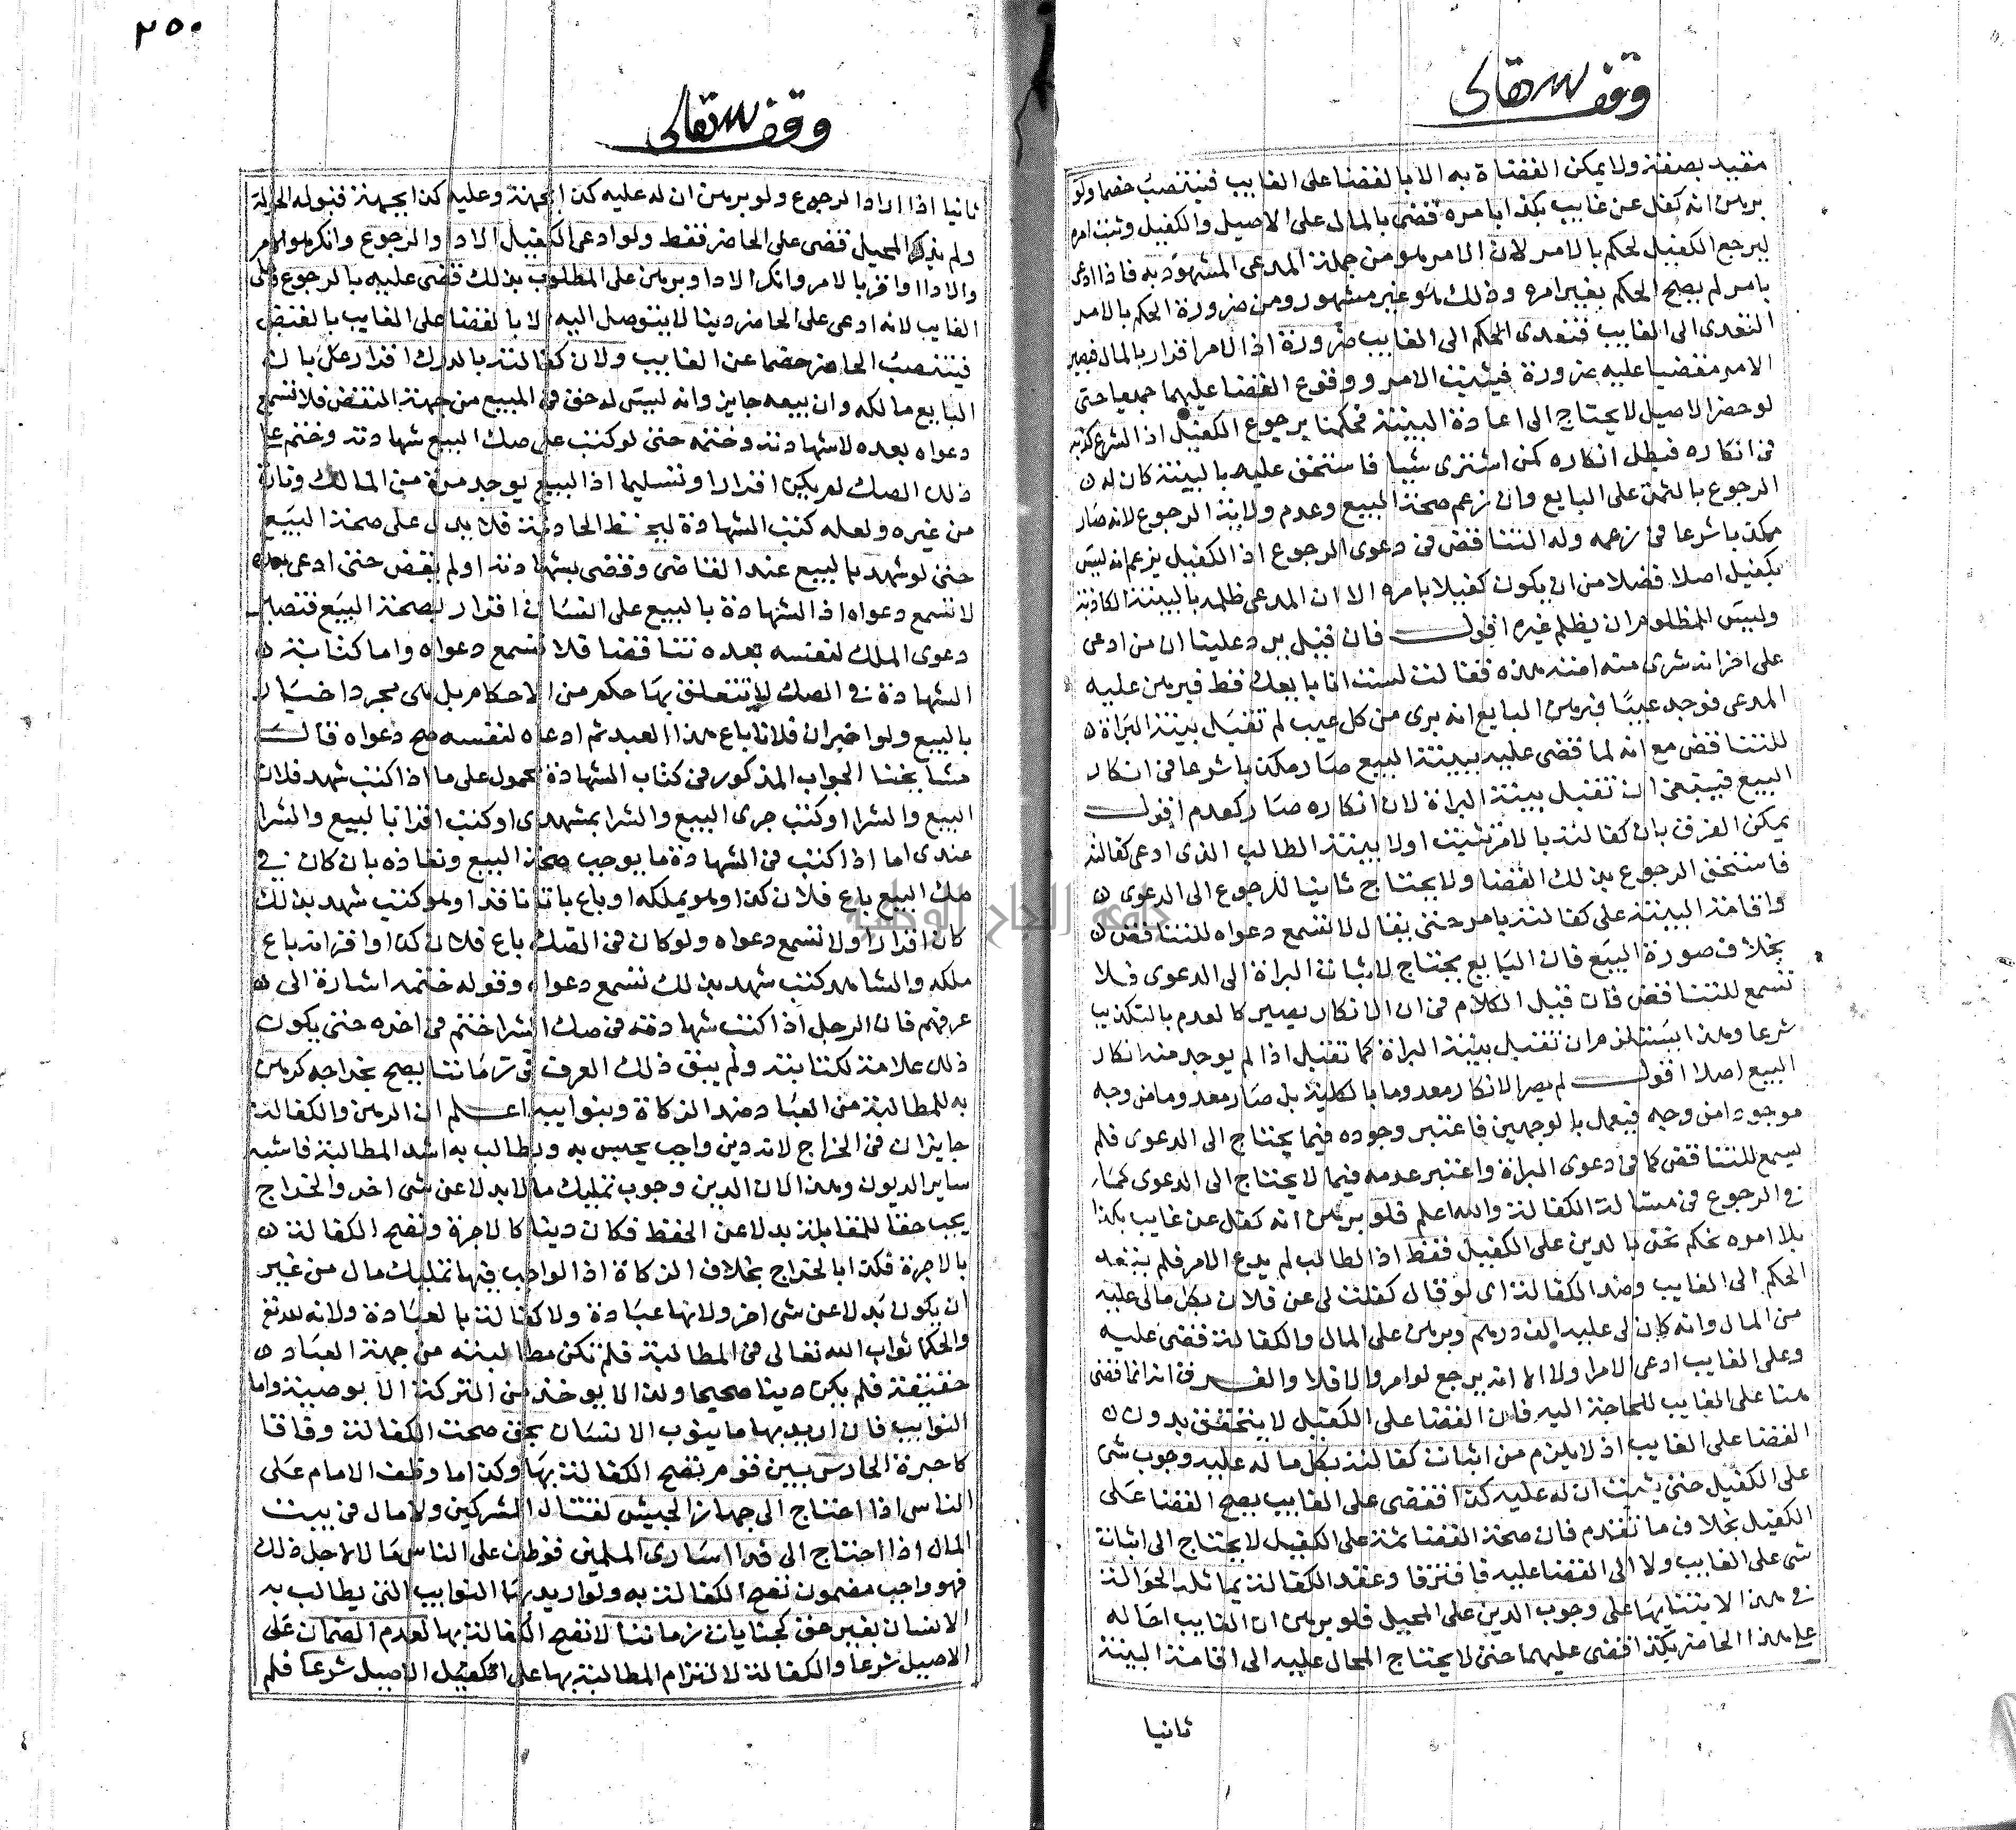 وقف لله تعالى
مقيد بصفة ولا يمكن القضاة به الا بالقضا على الغايب فينتصب خصما ولو
برهن انه كفل عن غايب بكذا بامره قضى بالمال على الاصيل والكفيل وثبت امره
ليرجع الكفيل لحكم بالامر لان الامر هو من جملة المدعى المشهود به فاذا ادعى
بامر لم يصح الحكم بغير امره وذلك هو غير مشهور ومن ضرورة الحكم بالامر
التعدى الى الغايب فتعدى الحكم الى الغايب ضرورة اذ الامر اقرار بالمال فيصير
الامر مقضيا عليه ضرورة فيثبت الامر ووقوع القضا عليهما جميعا حتى
لو حضر الاصيل لا يحتاج الى اعادة البينة فحكمنا برجوع الكفيل اذ الشرع كذبه
فى انكاره فبطل انكاره كمن اشترى شيا فاستحق عليه بالبينة كان له
الرجوع بالثمن على البايع وان زعم صحة المبيع وعدم ولاية الرجوع لانه صار
مكذبا شرعا فى زعمه وله التناقض فى دعوى الرجوع اذ الكفيل يزعم انه ليس
بكفيل اصلا فضلا من ان يكون كفيلا بامره الا ان المدعى ظلمه بالبينة الكاذبة
وليس للمظلوم ان يظلم غيره اقول فان قيل يرد علينا ان من ادعى
على اخر انه شرى منه امته هذه فقالت لست انا بايعك قط فبرهن عليه
المدعى فوجد عيبا فبرهن البايع انه برى من كل عيب لم تقبل بينة البراة
للتناقض مع انه لما قضى عليه ببينة البيع صار مكذبا شرعا فى انكار
البيع فينبغى ان تقبل بينة البراة لان انكاره صار كعدم اقول
يمكن الفرق بان كفالته بالامر ثبتت اولا ببينة الطالب الذى ادعى كفالته
فاستحق الرجوع بذلك القضا ولا يحتاج ثانيا للرجوع الى الدعوى
واقامة البينة على كفالته بامر حتى يقال لا تسمع دعواه للتناقض
بخلاف صورة البيع فان البايع يحتاج لاثبات البراة الى الدعوى فلا
تسمع للتناقض فان قيل الكلام فى ان الانكار يصير كالعدم بالتكذيب
شرعا وهذا يستلزم ان تقبل بينة البراة كما تقبل اذا لم يوجد منه انكار
البيع اصلا اقول لم يصر الانكار معدوما بالكلية بل صار معدوما من وجه
موجودا من وجه فيعمل بالوجهين فاعتبر وجوده فيما يحتاج الى الدعوى فلم
يسمع للتناقض كما فى دعوى البراة واعتبر عدمه فيما لا يحتاج الى الدعوى كما
فى الرجوع فى مسئالة الكفالة والله اعلم فلو برهن انه كفل عن غايب بكذا
بلا امره نحكم نحن بالدين على الكفيل فقط اذ الطالب لم يدع الامر فلم يتعد
الحكم الى الغايب وضد الكفالة اى لو قال كفلت لى عن فلان بكل مالى عليه
من المال وانه كان لى عليه الف درهم وبرهن على المال والكفالة فقضى عليه
وعلى الغايب ادعى الامر اولا الا انه يرجع لو امر والا فلا والفرق انه انما قضى
هنا على الغايب للحاجة اليه فان القضا على الكفيل لا يتحقق بدون
القضا على الغايب اذ لا يلزم من اثبات كفالته بكل ماله عليه وجوب شى
على الكفيل حتى يثبت ان له عليه كذا فقضى على الغايب يصح القضا على
الكفيل بخلاف ما تقدم فان صحة القضا ثمة على الكفيل لا يحتاج الى اثبات
شى على الغايب ولا الى القضا عليه فافترقا وعقد الكفالة يماثله الحوالة
فى هذا لابتنايها على وجوب الدين على المحيل فلو برهن ان الغايب احاله
على هذا الحاضر بكذا قضى عليهما حتى لا يحتاج المحال عليه الى اقامة البينة
ثانيا
٢٥٠
وقف لله تعالى
ثانيا اذا اراد الرجوع ولو برهن ان له عليه كذا بجهة وعليه كذا بجهة قبوله الحوالة
ولم يذكر المحيل قضى على الحاضر فقط ولو ادعى الكفيل الادا والرجوع وانكر هو الامر
والادا او اقر بالامر وانكر الادا وبرهن على المطلوب بذلك قضى عليه بالرجوع وعلى
الغايب لانه ادعى على الحاضر دينا لا يتوصل اليه الا بالقضا على الغايب بالقبض
فينتصب الحاضر خصما عن الغايب ولان كفالته بالدرك اقرار على بان
البايع مالكه وان بيعه جايز وانه ليس له حق فى المبيع من جهة النقض فلا تسمع
دعواه بعده لا شهادته وختمه حتى لو كتب على صك البيع شهادته وختم على
ذلك الصك لم يكن اقرارا وتسليما اذ البيع يوجد مرة من المالك وتارة
من غيره ولعله كتب الشهادة ليحفظ الحادثة فلا يدل على صحة البيع
حتى لو شهد بالبيع عند القاضى وقضى بشهادته او لم يقض حتى ادعى بعده
لا تسمع دعواه اذ الشهادة بالبيع على انسان اقرار بصحة البيع فتصير
دعوى الملك لنفسه بعده تناقضا فلا تسمع دعواه واما كتابة
الشهادة فى الصك لا يتعلق بها حكم من الاحكام بل هى مجرد اخبار
بالبيع ولو اخبر ان فلانا باع هذا العبد ثم ادعاه لنفسه صح دعواه قالت
مشايخنا الجواب المذكور فى كتاب الشهادة محمول على ما اذا كتب شهد فلان
البيع والشرا او كتب جرى البيع والشرا بمشهدى او كتب اقرا بالبيع والشرا
عندى اما اذا كتب فى الشهادة ما يوجب صحة البيع ونفاذه بان كان فى
صك البيع باع فلان كذا وهو يملكه او باع باتا نافذا وهو كتب شهد بذلك
كان اقرارا ولا تسمع دعواه ولو كان فى الصك باع فلان كذا او اقر انه باع
ملكه والشاهد كتب شهد بذلك تسمع دعواه وقوله ختمه اشارة الى
عرفهم فان الرجل اذا كتب شهادته فى صك الشرا ختم فى اخره حتى يكون
ذلك علامة لكتابته ولم يبق ذلك العرف فى زماننا يصح بخراجه كرهن
به للمطالبة من العباد ضد الزكاة وبنوايبه اعلم ان الرهن والكفالة
جايزان فى الخراج لانه دين واجب يحبس به ويطالب به اشد المطالبة فاشبه
ساير الديون وهذا لان الدين وجوب تمليك مال بدلا عن شى اخر والخراج
يجب حقا للمقابلة بدلا عن الحفظ فكان دينا كالاجرة وتصح الكفالة
بالاجرة فكذا بالخراج بخلاف الزكاة اذ الواجب فيها تمليك مال من غير
ان يكون بدلا عن شى اخر ولانها عبادة ولا كفالة بالعبادة ولانه
ثواب الله تعالى فى المطالبة فلم تكن مطالبته من جهة العباد
حقيقة فلم يكن دينا صحيحا ولذا لا يوخذ من التركة الا بوصية واما
النوايب فان اريد بها ما ينوب الانسان بحق صحت الكفالة وفاقا
كاجرة الحارس بين قوم تصح الكفالة بها وكذا ما وظف الامام على
الناس اذا احتاج الى جهاز الجيش لقتال المشركين ولا مال فى بيت
المال اذا احتاج الى فدا اسارى المسلمين فوظف على الناس مالا لاجل ذلك
فهو واجب مضمون تصح الكفالة به ولو اريد بها النوايب التى يطالب به
الانسان بغير حق كجنايات زماننا لا تصح الكفالة بها لعدم الضمان على
الاصيل شرعا والكفالة لالتزام المطالبة بها على الكفيل الاصيل شرعا فلم
جامعة النجاح الوطنية